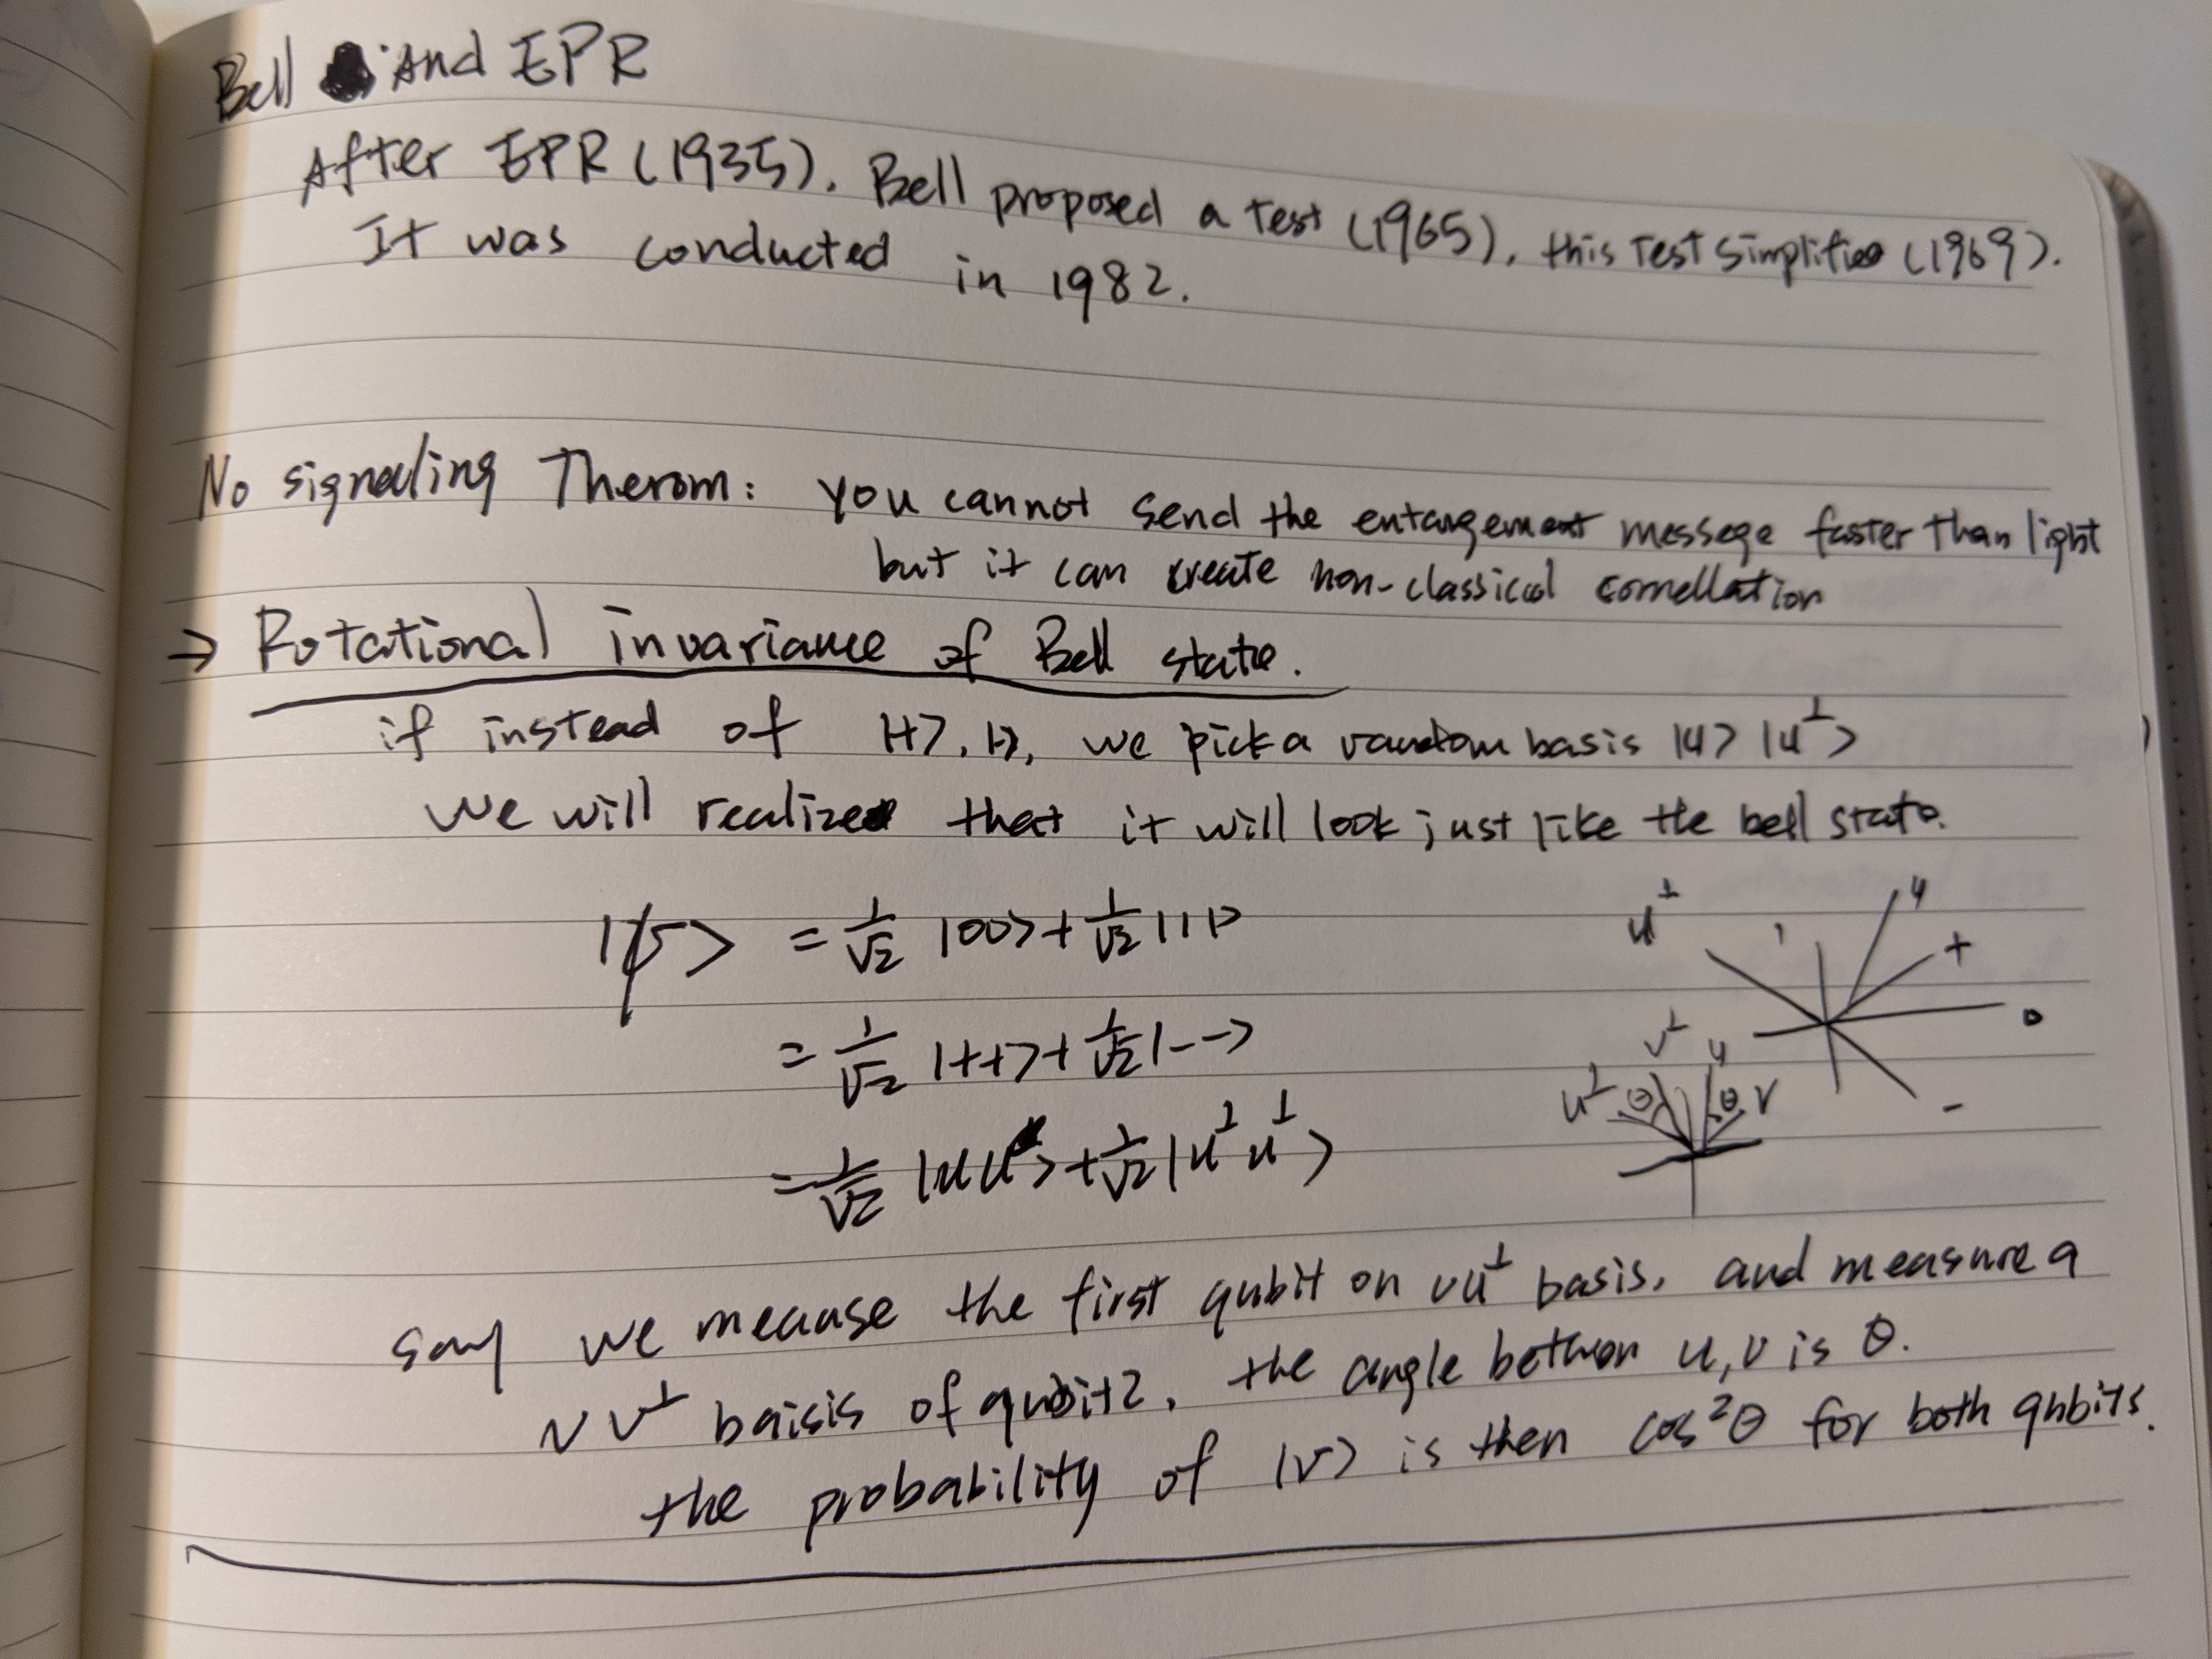 Bell And EPR
After EPR (1935). Bell proposed a test (1965), this test simplifies (1969).
It was conducted in 1982.
No signaling Therom: you cannot send the entangement messege faster than light
but it can create non-classical correllation
→ Rotational invariance of Bell state.
if instead of |+>, |->, we pick a random basis |u> |u^⊥>
we will realize that it will look just like the bell state.
|ψ> = 1/√2 |00> + 1/√2 |11>
= 1/√2 |++> + 1/√2 |-->
= 1/√2 |uu> + 1/√2 |u^⊥ u^⊥>
u^⊥ 1 u + 0 -
v^⊥ u u^⊥ θ θ v
say we meause the first qubit on uu^⊥ basis, and measure a
v v^⊥ baisis of qubit 2, the angle between u, v is θ.
the probability of |v> is then cos²θ for both qubits.